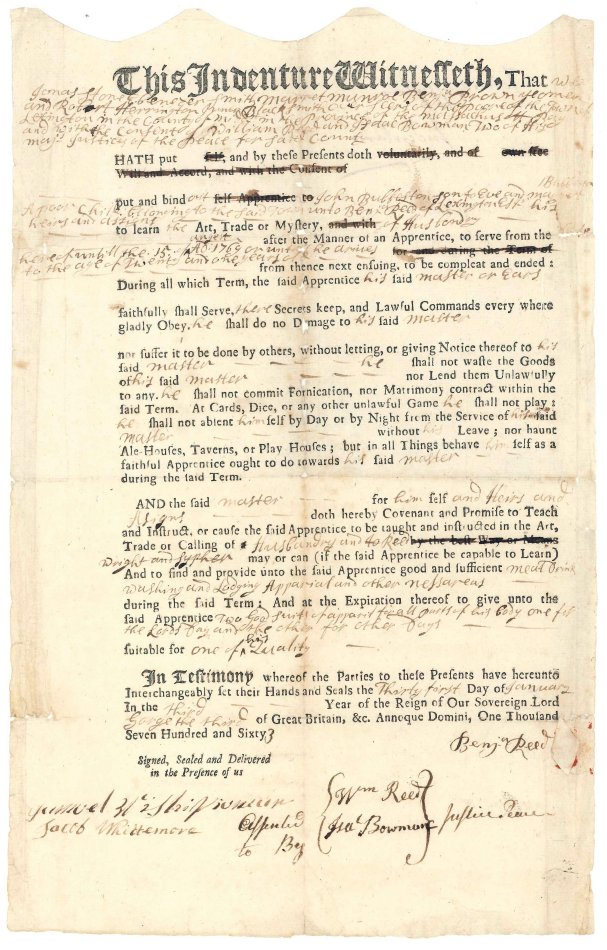 This Indenture Witnesseth, That we
Jonas Stone Ebenezer Smith Marret Munroe Benj Brown Stomen
and Robert Harrington Select of the Town of
Lexington in the County of in the Province of the Massachus Bay
and with the Consent of William Reed and Isaac Bowman two of His
majs Justices of the Peace for said County
HATH put self, and by these Presents doth voluntarily, and of own free
Will and Accord, and with the Consent of
put and bind out self Apprentice to John son of Eve and
A poor Child belonging to the said Town unto Benj Reed of Lexington his
heirs and assigns
to learn the Art, Trade or Mystery, and with of Husbandry
after the Manner of an Apprentice, to serve from the
hereof untill the 15 1769 he arives
for and during the Term of
to the age of twenty and one years
from thence next ensuing, to be compleat and ended:
During all which Term, the said Apprentice his said master or
faithfully shall Serve, there Secrets keep, and Lawful Commands every where
gladly Obey. he shall do no Damage to his said master
nor suffer it to be done by others, without letting, or giving Notice thereof to his
said master he shall not waste the Goods
of his said master nor Lend them Unlawfully
to any. he shall not commit Fornication, nor Matrimony contract within the
said Term. At Cards, Dice, or any other unlawful Game he shall not play:
he shall not absent him self by Day or by Night from the Service of his said
master without his Leave; nor haunt
Ale-Houses, Taverns, or Play Houses; but in all Things behave him self as a
faithful Apprentice ought to do towards his said master
during the said Term.
AND the said master for him self and Heirs and
Asigns doth hereby Covenant and Promise to Teach
and Instruct, or cause the said Apprentice to be taught and instructed in the Art,
Trade or Calling of a Husbandry and to Reed by the best Way or Means
Wright and Sipher may or can (if the said Apprentice be capable to Learn)
And to find and provide unto the said Apprentice good and sufficient meat Drink
washing and Lodging Apparial and other
during the said Term; And at the Expiration thereof to give unto the
said Apprentice Two Good suits of apparil to all parts of his Body one for
the Lords Day and the other for other Days
suitable for one of his Quality
In Testimony whereof the Parties to these Presents have hereunto
Interchangeably set their Hands and Seals the Thirty first Day of January
In the third Year of the Reign of Our Sovereign Lord
Gorge the third of Great Britain, &c. Annoque Domini, One Thousand
Seven Hundred and Sixty 3
Benja Reed
Signed, Sealed and Delivered
in the Presence of us
Wm Reed
Jacob Whittemore
Assented
to By
Isac Bowman
Justice Peace